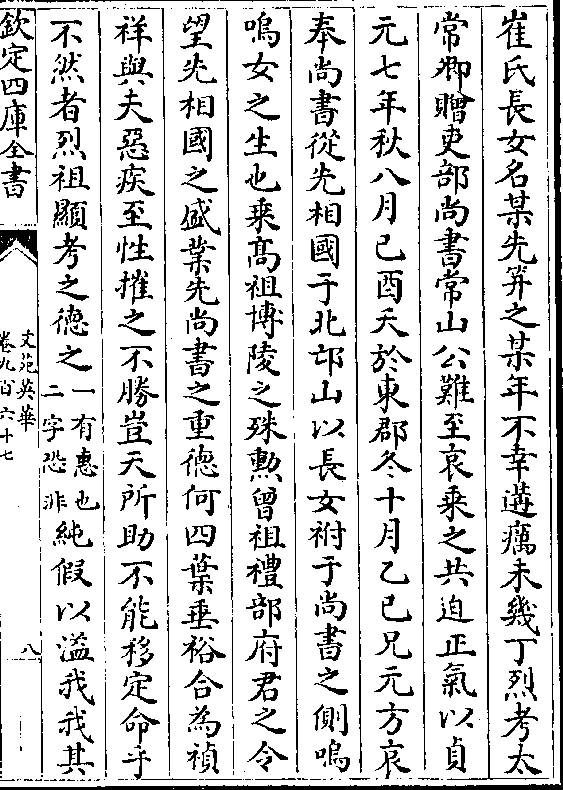 崔氏長女名某先筓之某年不幸遘癘未幾丁烈考太
常卿贈吏部尚書常山公難至哀乘之共迫正氣以貞
元七年秋八月己酉夭於東郡冬十月乙巳兄元方哀
奉尚書從先相國于北邙山以長女祔于尚書之側嗚
嗚女之生也乘髙祖博陵之殊勲曾祖禮部府君之令
望先相國之盛業先尚書之重德何四葉垂裕合為禎
祥與夫惡疾至性摧之不勝豈天所助不能移定命乎
不然者烈祖顯考之德之一有惠也二字恐非純假以溢我我其
欽定四庫全書
文苑英華
卷九百六十七
八